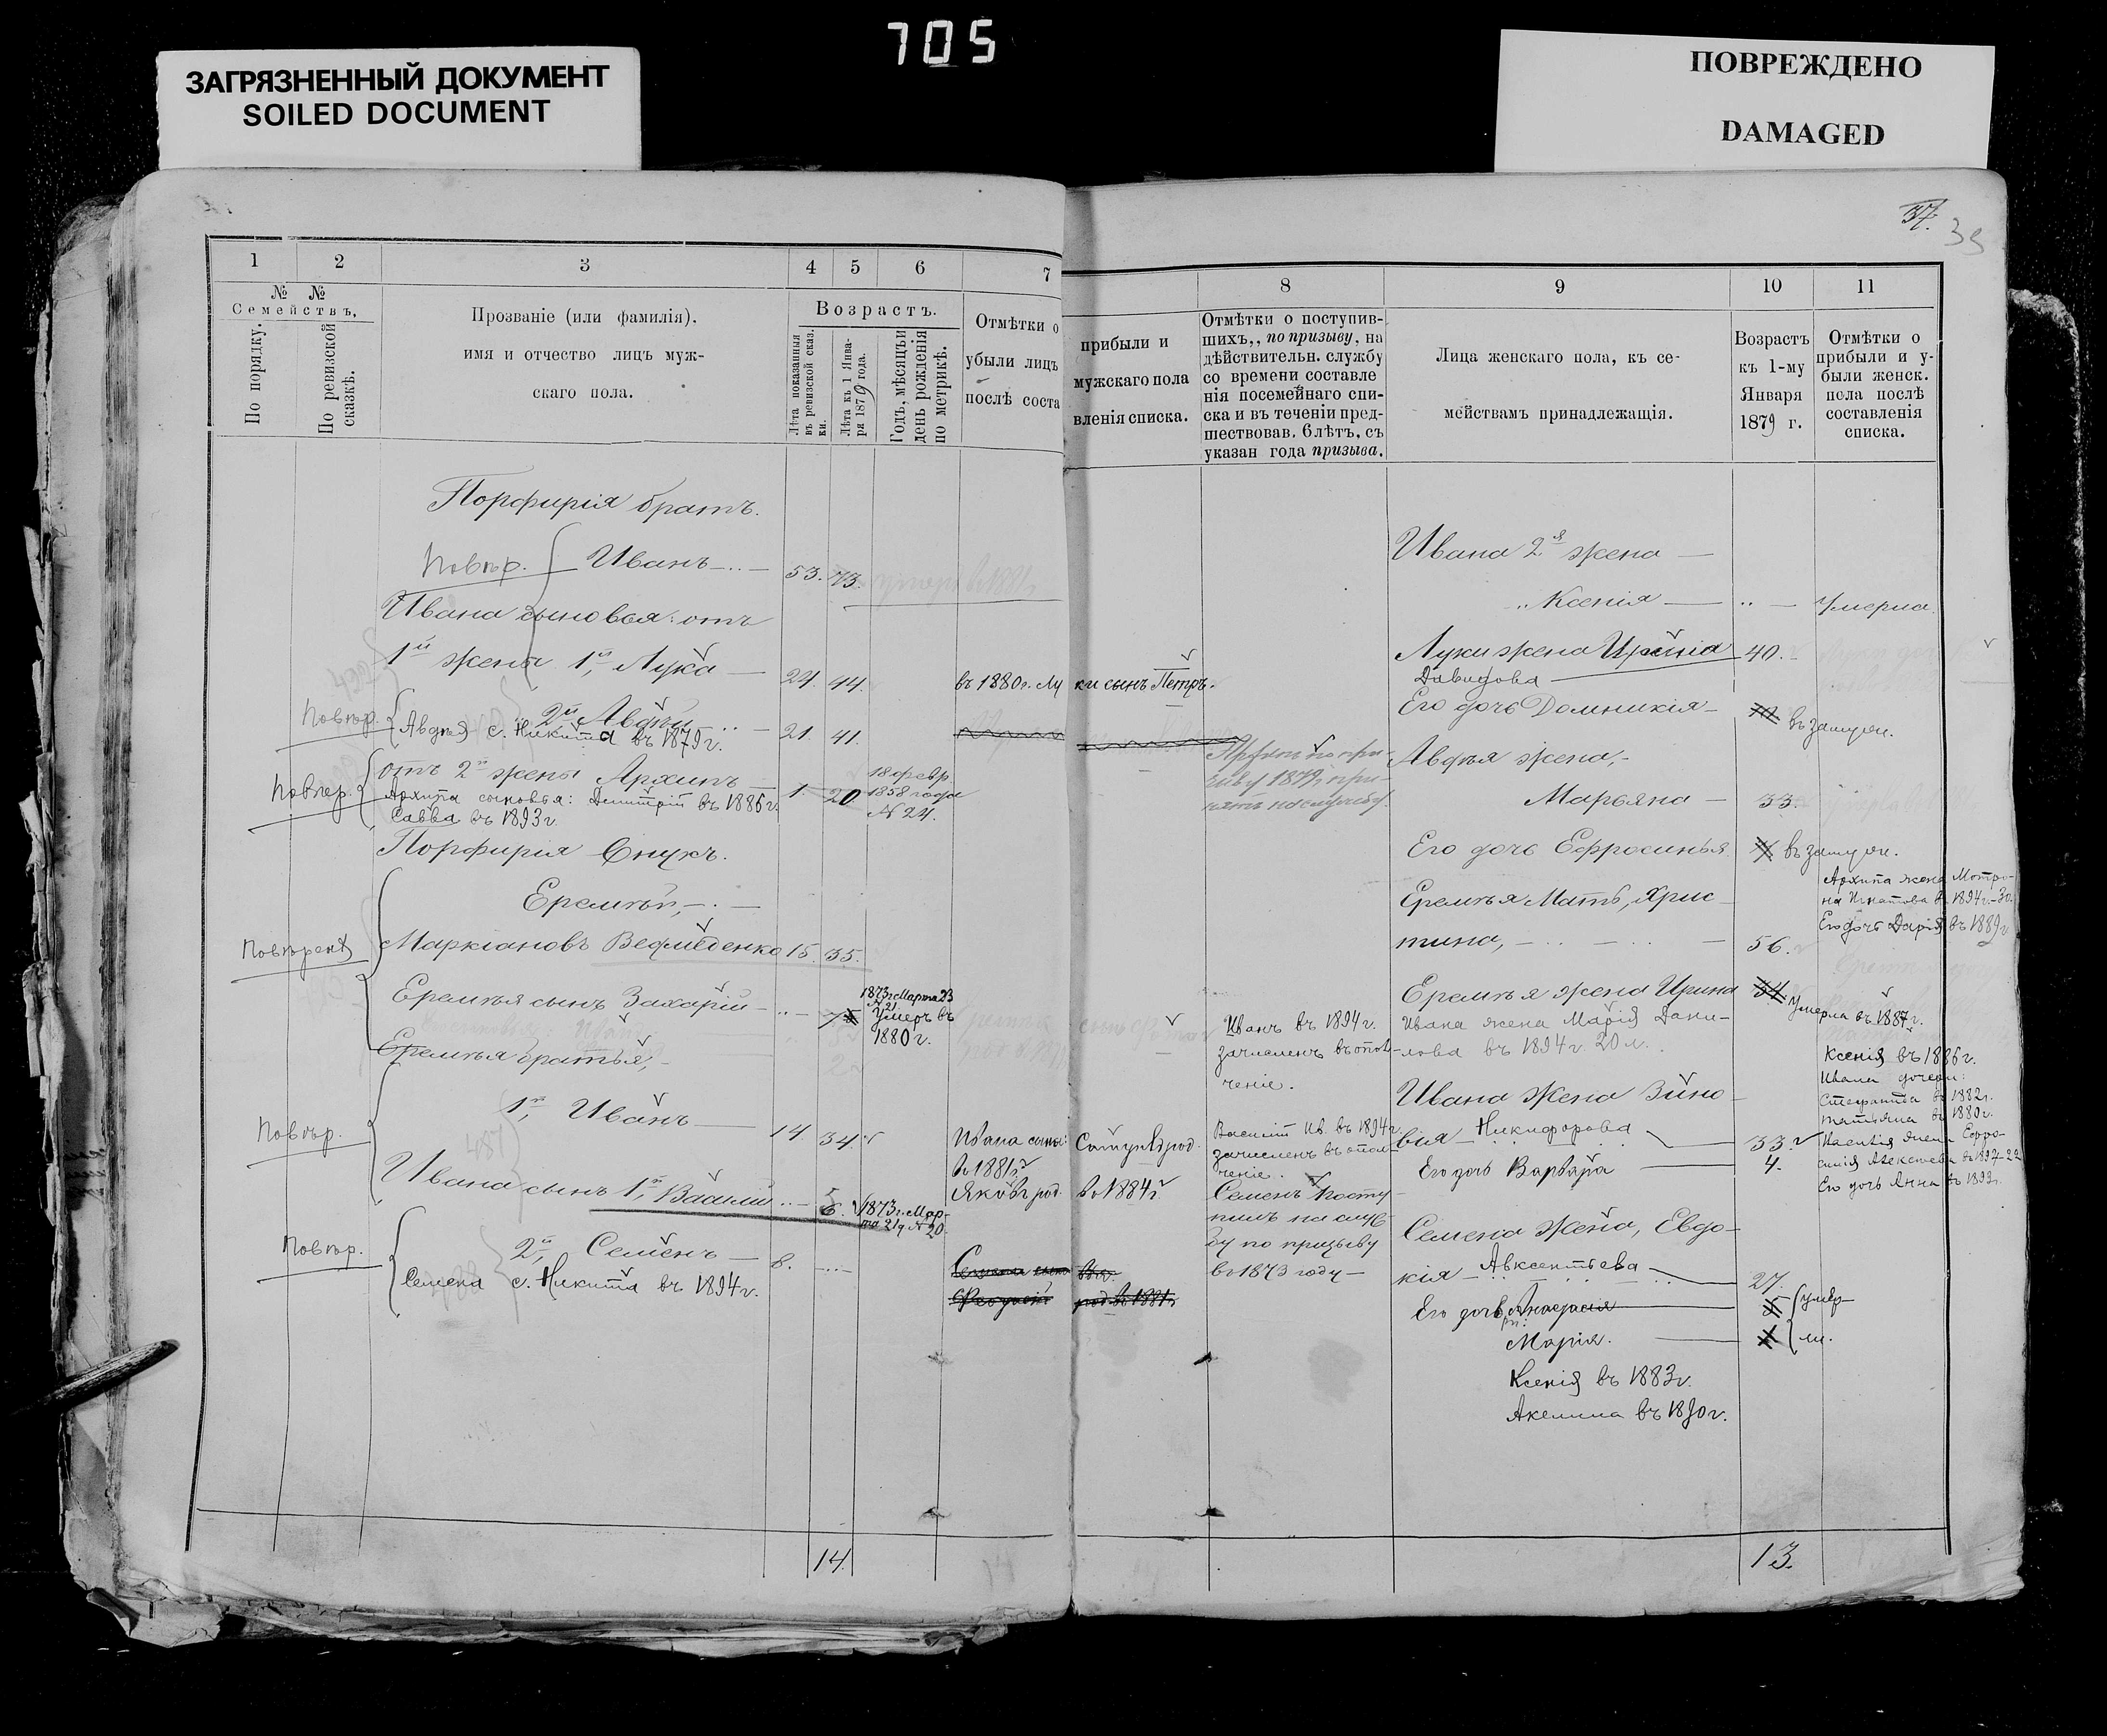 705
ЗАГРЯЗНЕННЫЙ ДОКУМЕНТ
SOILED DOCUMENT
ПОВРЕЖДЕНО
DAMAGED
37.
39
1 2 3 4 5 6 7
№ № Семействъ,
По порядку.
По ревизской сказкѣ.
Прозваніе (или фамилія).
имя и отчество лицъ муж-
скаго пола.
Возрастъ.
Лѣта показанныя въ ревизской сказ. ки.
Лѣта къ 1 Янва- ря 1879 года.
Годъ, мѣсяцъ и день рожденія по метрикѣ.
Отмѣтки о
убыли лицъ
послѣ соста
Порфирія братъ.
Повѣр. Иванъ 53. 73.
Ивана сыновья: отъ
1й жены 1й, Лука 24. 44. въ 1880 г. Лу
2й Авдѣй 21. 41.
Повѣр. Авдѣя с. Никита въ 1879 г.
отъ 2й жены Архипъ 1. 20 18 февр. 1858 года № 24.
Повѣр. Архипа сыновья: Димитрій въ 1886 г.
Савва въ 1893 г.
Порфирія Внукъ.
Еремѣй,
Повѣрена Маркіановъ Ведмеденко 15. 35.
Еремѣя сынъ Захарій 1873 г. Марта 23 № 21 Умеръ въ 1880 г.
Еремѣя братья,
Повѣр. 1й, Иванъ 14. 34. Ивана сыны:
въ 1881 г.
Ивана сынъ 1й, Василій 6. 1873 г. Мар- та 21 д. № 20. Яковъ род.
Повѣр. 2й, Семенъ 8.
Семена с. Никита въ 1894 г.
14.
8 9 10 11
прибыли и
мужскаго пола
вленія списка.
Отмѣтки о поступив-
шихъ,, по призыву, на
дѣйствительн. службу
со времени составле
нія посемейнаго спи-
ска и въ теченіи пред-
шествовав. 6 лѣтъ, съ
указан года призыва.
Лица женскаго пола, къ се-
мействамъ принадлежащія.
Возрастъ
къ 1-му
Января
1879 г.
Отмѣтки о
прибыли и у-
были женск.
пола послѣ
составленія
списка.
Ивана 2я жена
Ксенія Умерла.
ки сынъ Петръ. Луки жена Ирина 40.
Давидова
Его дочь Домникія въ замуж.
Архипъ по при-
зыву 1879 г. при-
нятъ на службу.
Авдѣя жена,
Марьяна 33.
Его дочь Ефросинья въ замуж.
Архипа жена Мотро-
на Игнатова въ 1894 г.
Его дочь Дарія въ 1889 г.
Еремѣя Мать, Хрис
тина, 56.
Еремѣя жена Ирина 34. Умерла въ 1887 г.
Иванъ въ 1894 г.
зачисленъ въ опол-
ченіе.
Ивана жена Марія Дани-
лова въ 1894 г. 20 л.
Ксенія въ 1886 г.
Ивана дочери:
Стефанида въ 1882 г.
Татьяна въ 1880 г.
Ивана жена Зино
вія Никифорова 33
Его дочь Варвара 4.
род.
въ 1884 г.
Василій Ив. въ 1894 г.
зачисленъ въ опол-
ченіе.
Василія жена Ефро-
синія Алексѣева въ 1897 - 22
Его дочь Анна въ 1893 г.
Семенъ посту
пилъ на служ
бу по призыву
въ 1873 году
Семена жена, Евдо-
кія Авксентьева 27.
Его дочь Анастасія умер-
Марія. ли.
Ксенія въ 1883 г.
Акелина въ 1890 г.
род. въ 1881 г.
13.